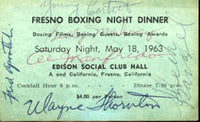 Young Corbett
FRESNO BOXING NIGHT DINNER
Boxing Films, Boxing Guests, Boxing Awards
Saturday Night, May 18, 1963
EDISON SOCIAL CLUB HALL
A and California, Fresno, California
Cocktail Hour 6 p.m. Dinner 7:30 p.m.
$4.00 per Person
Wayne Thornton
Fred